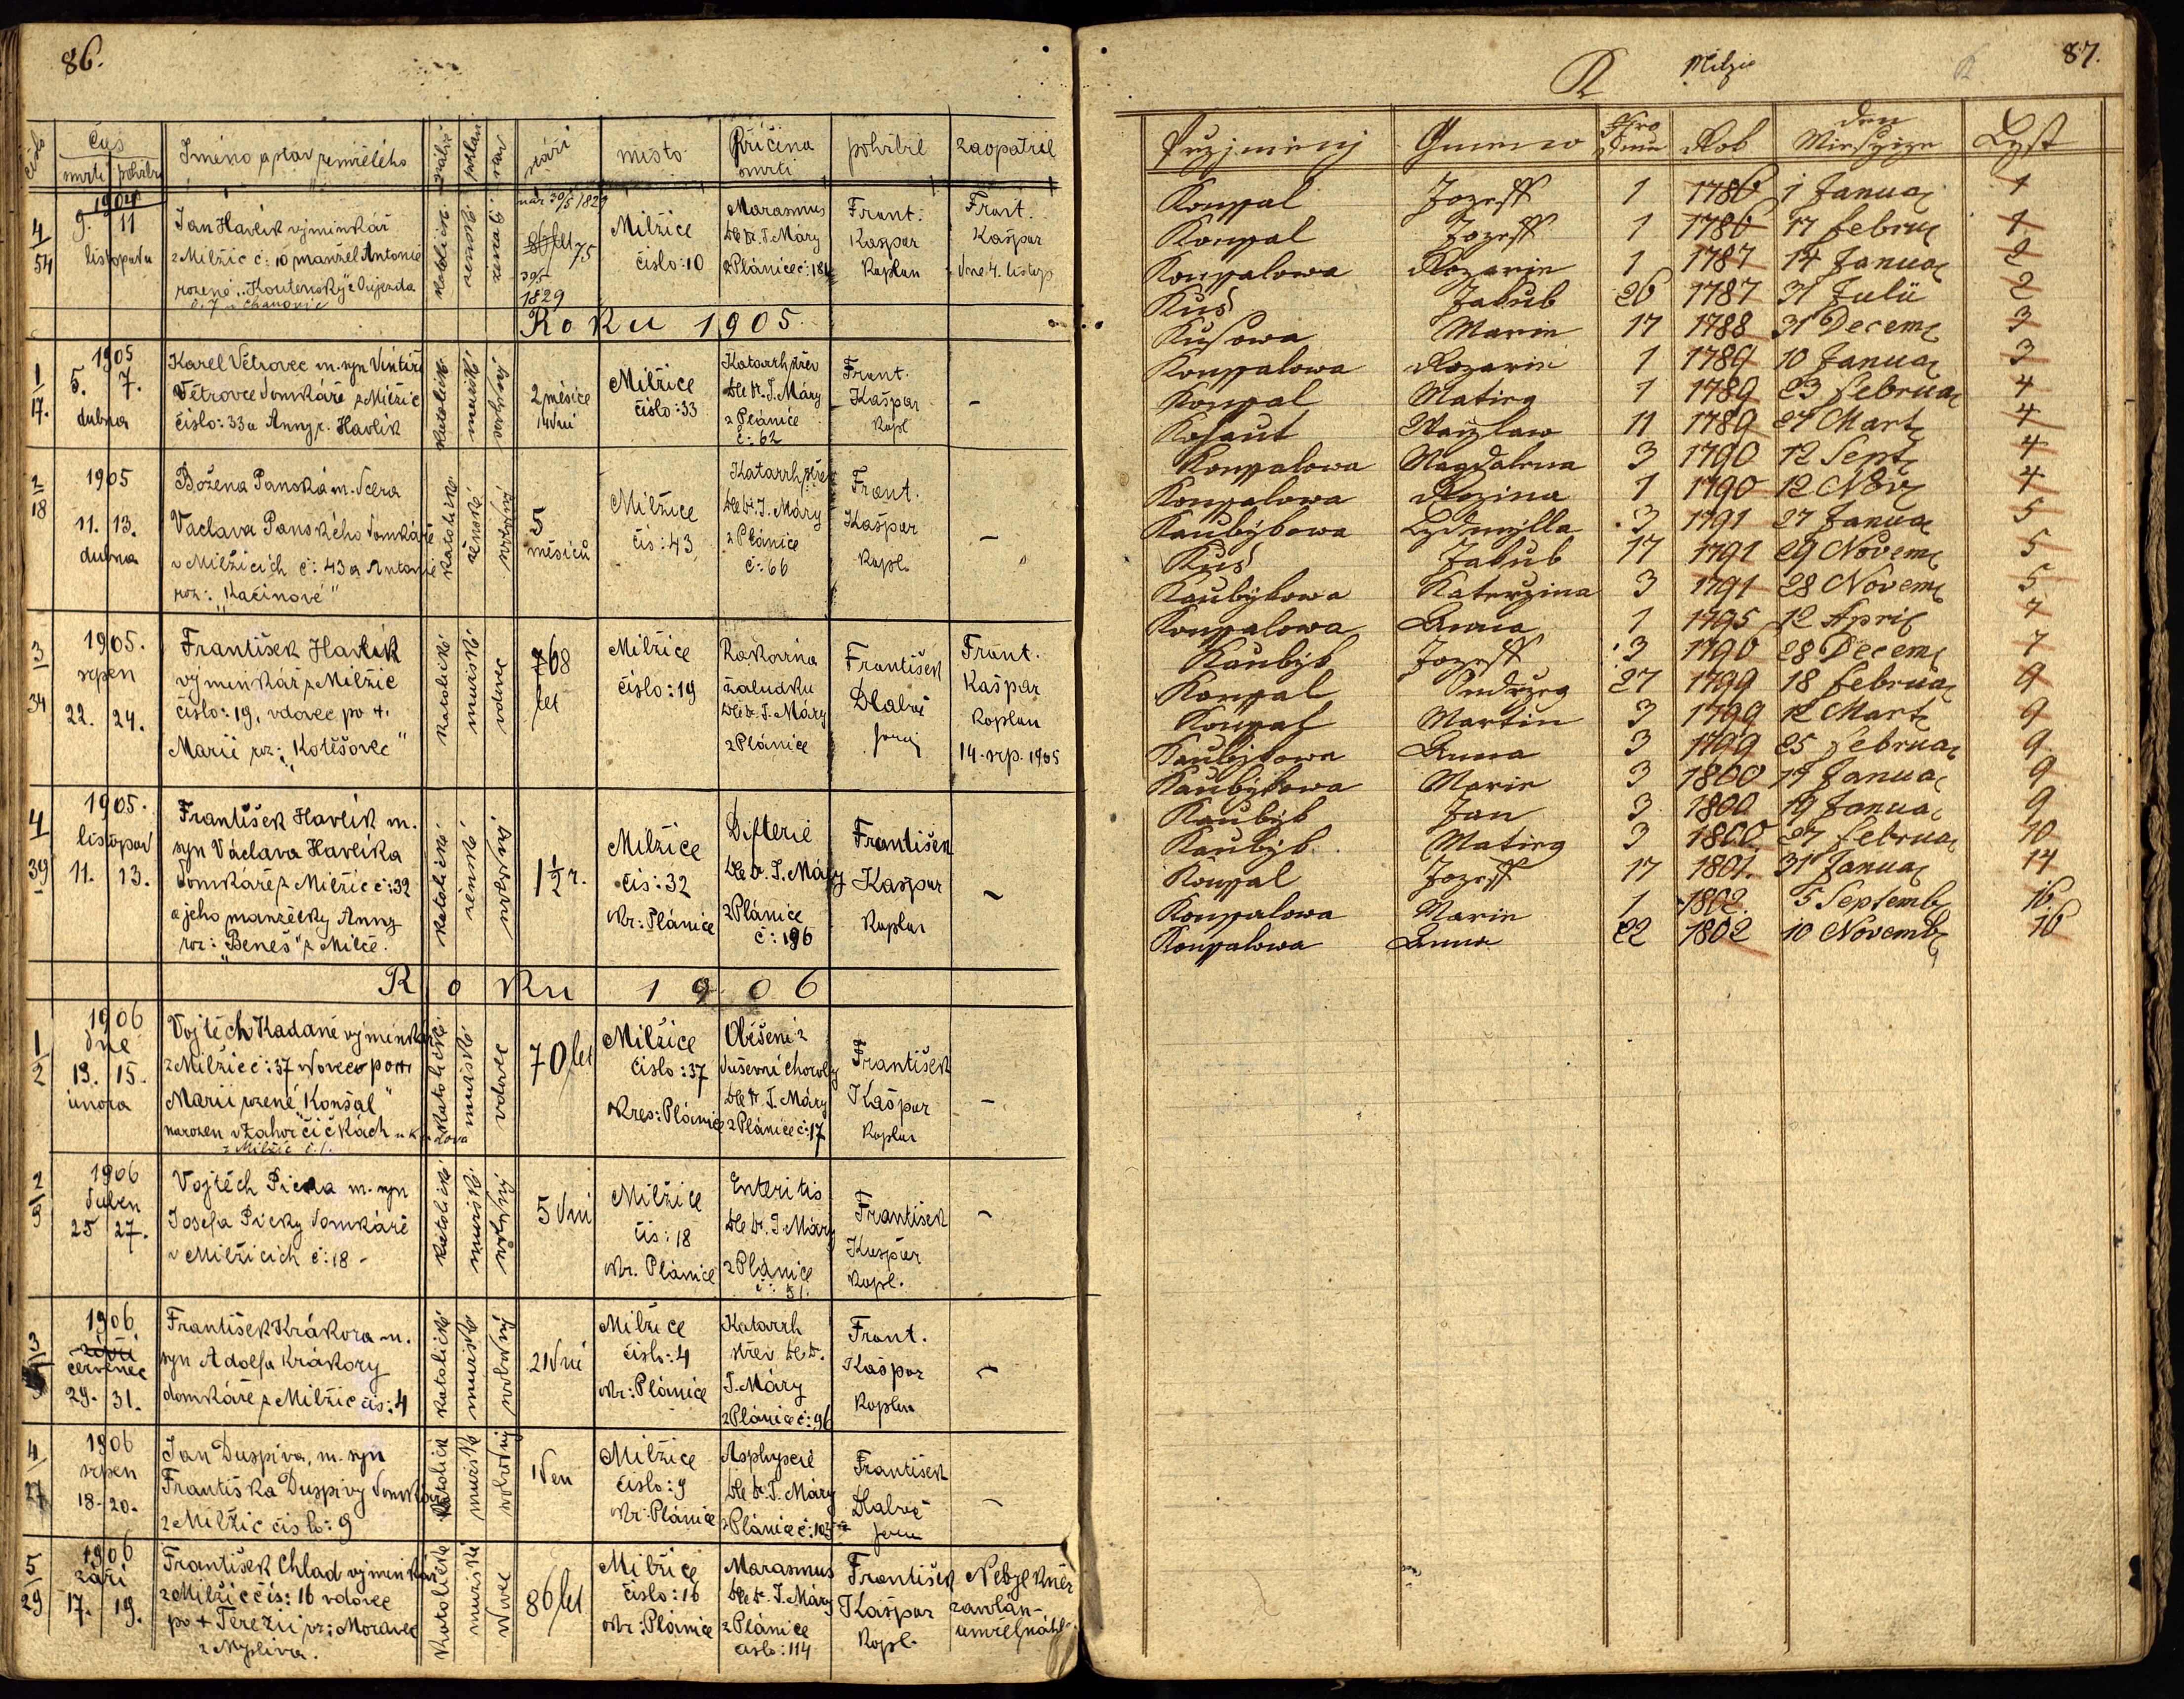 86.
číslo
čas
smrti
pohřbu
Jméno a stav zemřelého
stáří
místo
Příčina smrti
pohřbil
zaopatřil
4/54
1904
9. 11
listopadu
Jan Havlík výminkář
z Milžic č: 10 manžel Antonie
rozené „Koutenský z Újezda
katolické
ženatý
nar 30/5 1829
75
1829
Milžice
číslo: 10
Marasmus
dle Dr. J. Máry
z Plánice č: 184
Frant.
Kašpar
Kaplan
Frant.
Kašpar
dne 4. listop
Roku 1905.
1/17.
1905
5. 7.
dubna
Karel Větrovec m. syn
Větrovce domkáře z Milžic
číslo: 33 a Anny r. Havlík
katolické
mužské
svobodný
2 měsíce
14 dní
Milžice
číslo: 33
Katarrh střev
dle Dr. J. Máry
z Plánice
č: 62
Frant.
Kašpar
Kapl
–
2/18
1905
11. 13.
dubna
Božena Panská m. dcera
Václava Panského domkáře
v Milžicích č: 43 a Antonie
roz: „Kačinové"
katolické
ženské
svobodný
5
měsíců
Milžice
čís: 43
Katarrh střev
dle Dr. J. Máry
z Plánice
č: 66
Frant.
Kašpar
Kapl.
–
3/34
1905.
srpen
22. 24.
František Havlík
výminkář z Milžic
číslo: 19, vdovec po +.
Marii roz: „Kotěšovec"
katolické
mužské
vdovec
68
let
Milžice
číslo: 19
Rakovina
žaludku
dle Dr. J. Máry
z Plánice
František
Dlabač
farář
Frant.
Kašpar
Kaplan
14. srp. 1905
4/39
1905.
listopad
11. 13.
František Havlík m.
syn Václava Havlíka
domkáře z Milžic č: 32
a jeho manželky Anny
roz: „Beneš" z Milče.
katolické
svobodný
1½ r.
Milžice
čís: 32
okr: Plánice
Difterie
dle Dr. J. Máry
z Plánice
č: 196
František
Kašpar
Kaplan
–
Roku 1906
1/2
1906
dne
13. 15.
února
Vojtěch Kadaně výminkář
z Milžic č: 37 vdovec po +
Marii rozené „Konšal"
narozen v Zahorčičkách
z Milžic č. 1.
katolické
mužské
vdovec
70 let
Milžice
číslo: 37
okres: Plánice
Oběšení z
duševní choroby
dle Dr. J. Máry
z Plánice č: 17
František
Kašpar
Kaplan
–
2/9
1906
duben
25 27.
Vojtěch Picka m. syn
Josefa Picky domkáře
v Milžicích č: 18 -
katolické
mužské
svobodný
5 dní
Milžice
čís: 18
okr. Plánice
Enteritis
dle Dr. J. Máry
z Plánice
č: 51.
František
Kašpar
Kapl.
–
3
1906
červenec
29. 31.
František Krákora m.
syn Adolfa Krákory
domkáře z Milžic čís: 4
katolické
mužské
svobodný
21 dní
Milžice
číslo: 4
okr: Plánice
Katarrh
střev dle Dr.
J. Máry
z Plánice č: 96
Frant.
Kašpar
Kaplan
–
4/27
1906
srpen
18. 20.
Jan Duspiva, m. syn
Františka Duspivy domkáře
z Milžic číslo: 9
katolické
mužské
svobodný
1 den
Milžice
číslo: 9
okr: Plánice
Asphyxie
dle Dr. J. Máry
z Plánice č: 103
František
Dlabač
farář
–
5/29
1906
září
17. 19.
František Chlad výminkář
z Milžic čís: 16 vdovec
po + Terezii roz: Moravec
z Nezdliva.
katolické
mužské
vdovec
86 let
Milžice
číslo: 16
okr: Plánice
Marasmus
dle Dr. J. Máry
z Plánice
číslo: 114
František
Kašpar
Kapl.
Nebyl kněz
zavolán
umřel náhle
K
Milžic
87.
Przjmenj Gmeno Nro Domu Rok den Miesycze Lyst
Konssal Jozeff 1 1786 1 Januar 1
Konssal Jozeff 1 1786 17 Februar 1
Konssalowa Rozarie 1 1787 14 Januar 2
Kus Jakub 26 1787 31 Julii 2
Kusowa Marie 17 1788 31 Decem 3
Konssalowa Rozarie 1 1789 10 Januar 3
Konssal Matieg 1 1789 23 Februar 4
Kohaut Waczlaw 11 1789 27 Mart 4
Konssalowa Magdalena 3 1790 12 Sept 4
Konssalowa Rozina 1 1790 12 Nov 4
Kaubykowa Lydmylla 3 1791 27 Januar 5
Kus Jakub 17 1791 29 Novem 5
Kaubykowa Katerzina 3 1791 28 Novem 5
Konssalowa Anna 1 1795 12 April 7
Kaubyk Jozeff 3 1790 28 Decem 7
Konssal Ondrzeg 27 1799 18 Februar 9
Konssal Martin 3 1799 12 Mart 9
Kaubykowa Anna 3 1799 25 Februar 9
Kaubykowa Marie 3 1800 17 Januar 9
Kaubyk Jan 3 1800 19 Januar 9
Kaubyk Matieg 3 1800 27 Februar 10
Konssal Jozeff 17 1801. 31 Januar 14
Konssalowa Marie 1 1802. 5 Septemb 16.
Konssalowa Anna 22 1802 10 Novemb 16